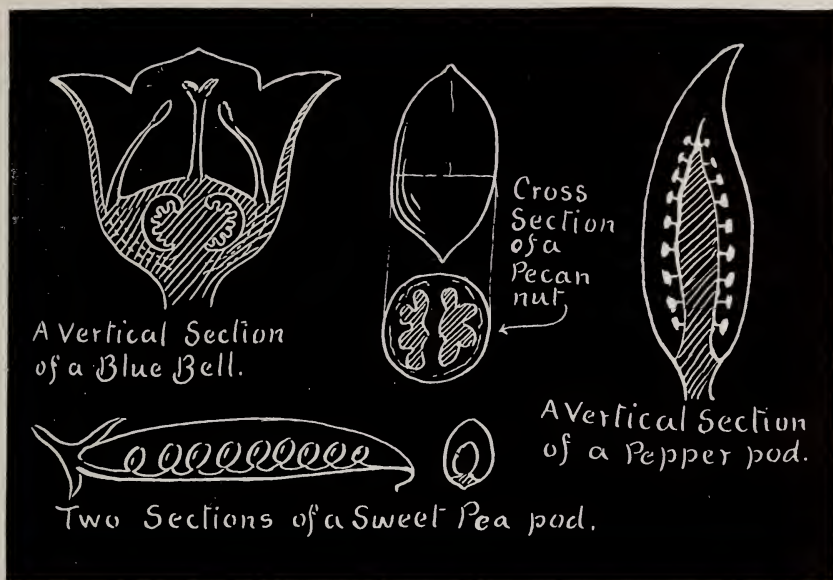 A Vertical Section
of a Blue Bell.
Cross
Section
of a
Pecan
nut
A Vertical Section
of a Pepper pod.
Two Sections of a Sweet Pea pod.